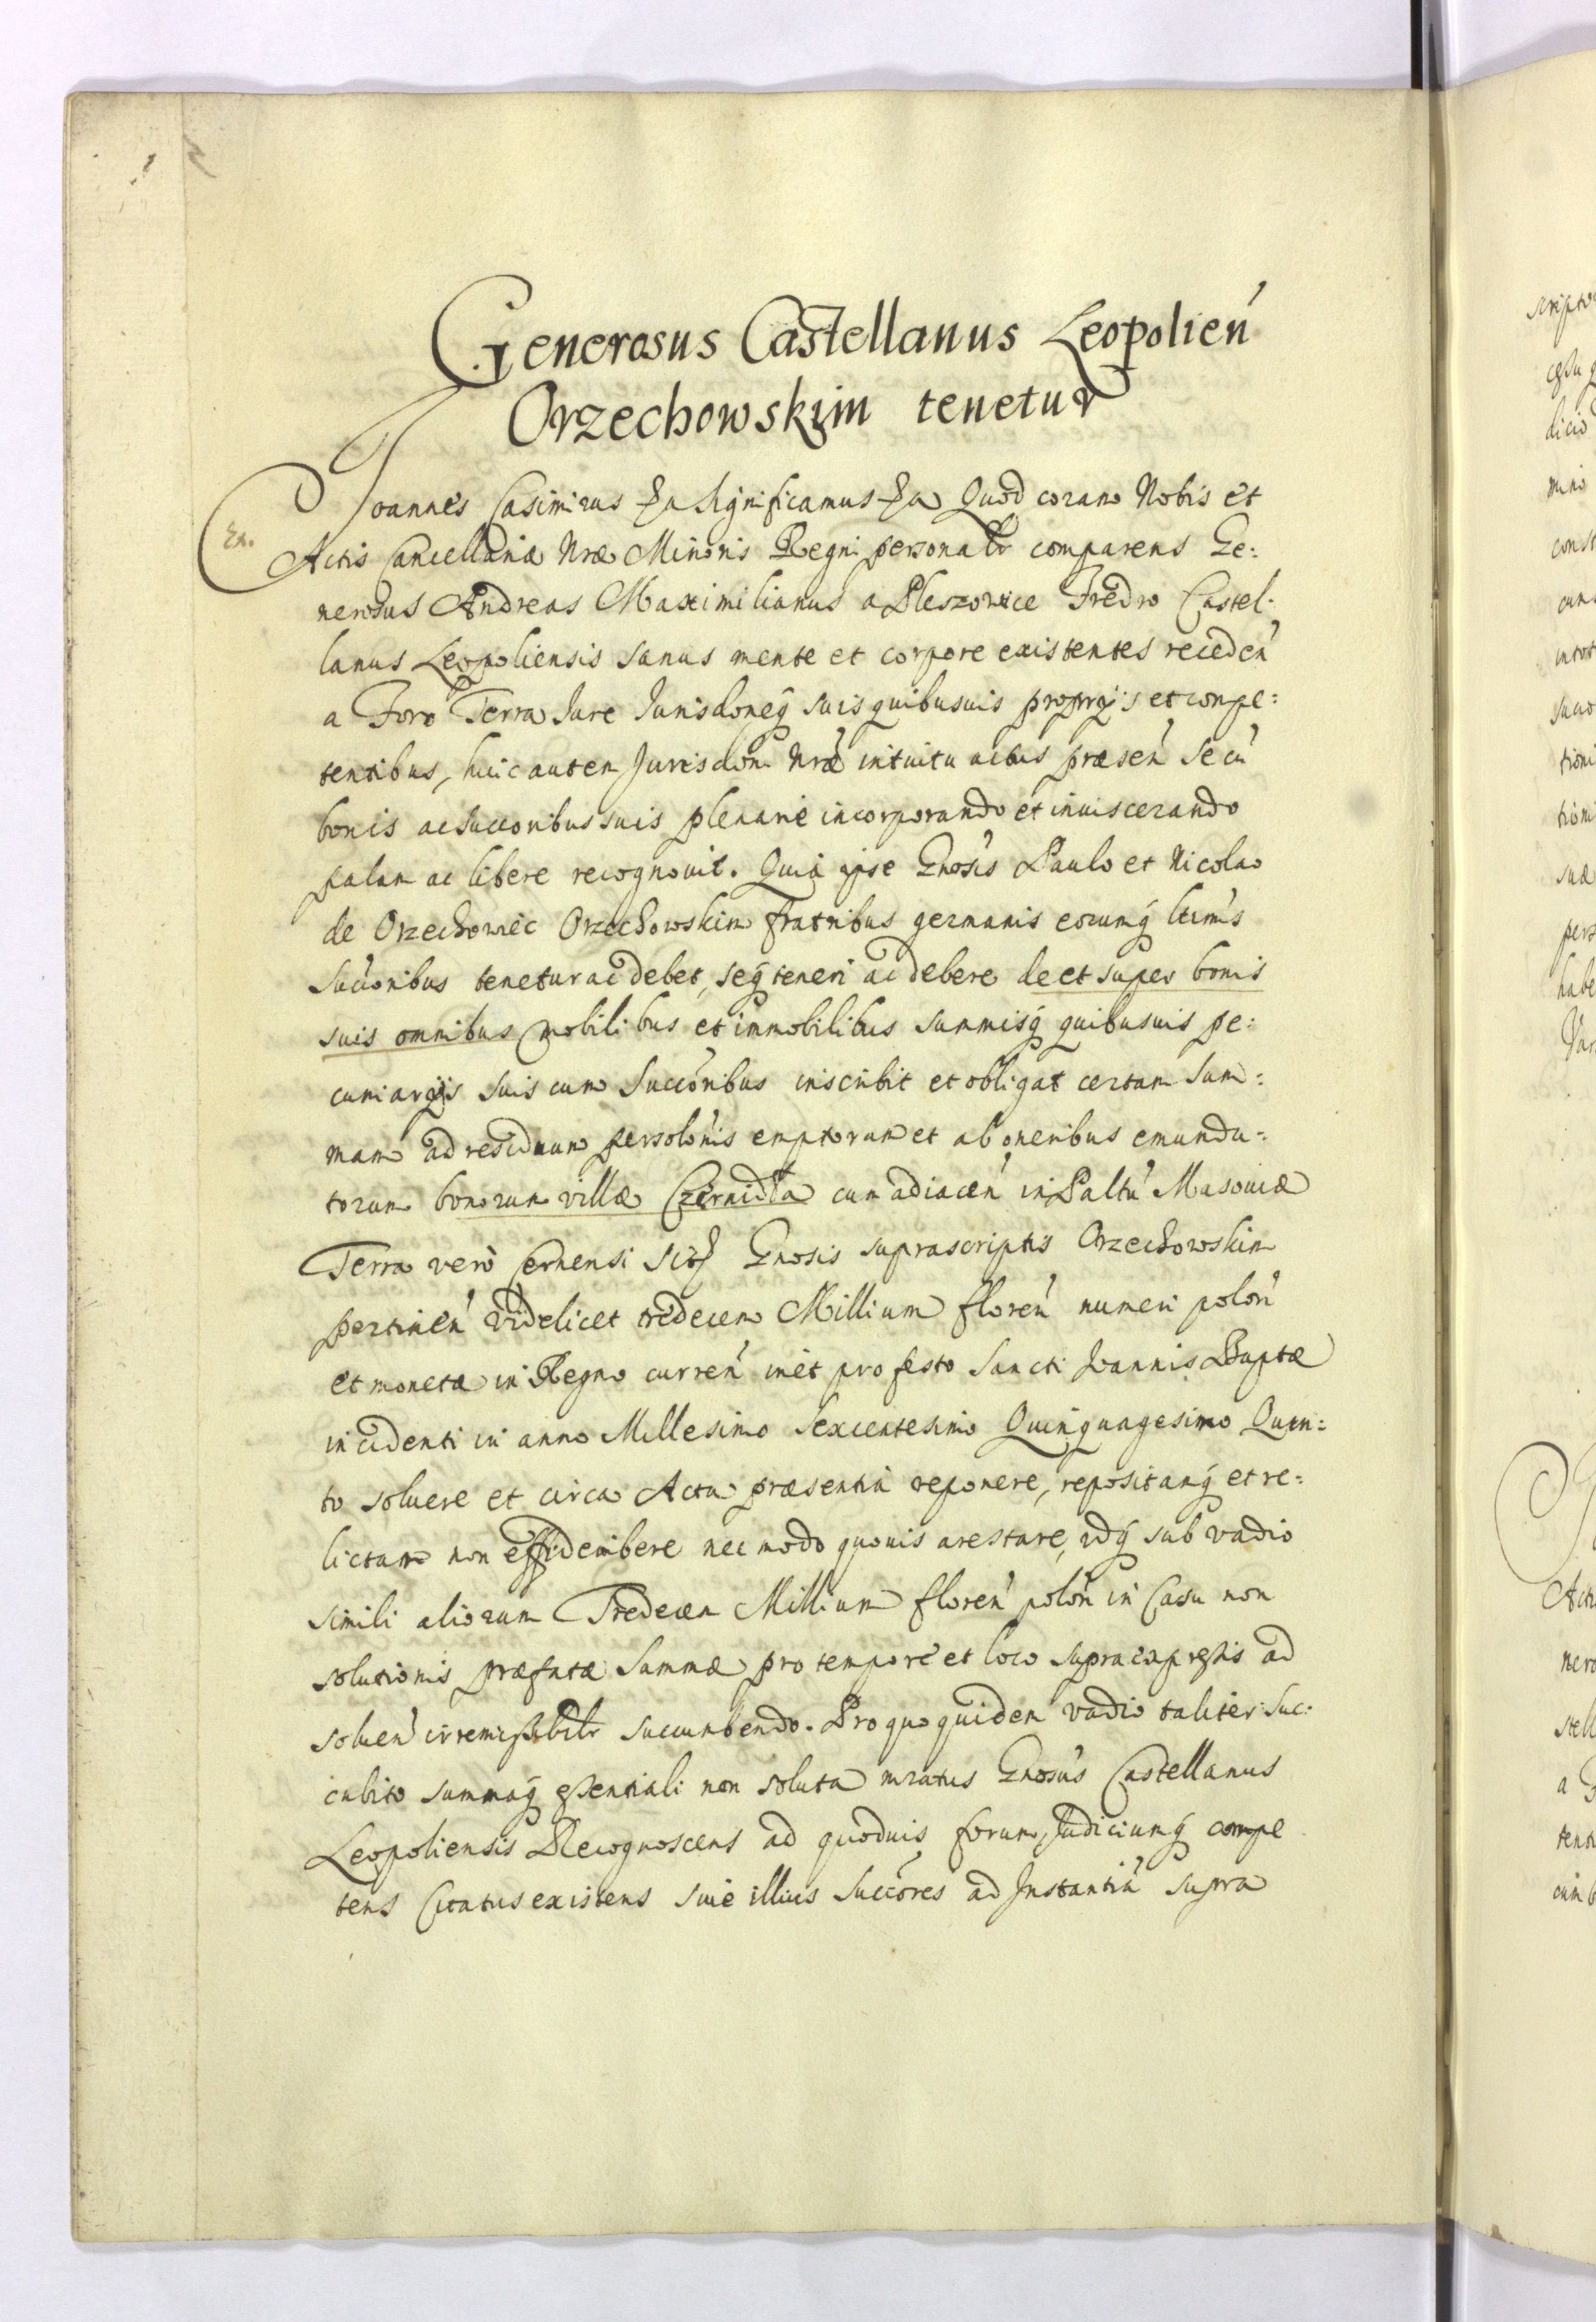 Generosus Castellanus Leopolień
Orzechowskim tenetur
Ioannes Casimirus Significamus Quod coram Nobis et
Ex.
Actis Cancellariæ Nræ Minoris Regni personalr comparens Ge:
nerosus Andreas Maximilianus a Pleszowice Fredro Castel:
lanus Leopoliensis sanus mente et corpore existentes receden
a Foro Terra Iure Iurisdoneq suis quibusuis proprijs et compe:
tentibus, huic autem Jurisdoni Nræ intuitu actus præseń se cũ
bonis ac succoribus suis plenarie incorporando et inuiscerando
palam ac libere recognouit. Quia ipse Gnosis Paulo et Nicolao
de Orzechowiec Orzechowskim fratribus germanis eorumq ltimis
succoribus tenetur ac debet, seq teneri ac debere de et super bonis
suis omnibus mobilibus et immobilibus summisq quibusuis pe:
cuniarijs suis cum succoribus inscribit et obligat certam sum:
mam ad residuum persolonis emptorum et ab oneribus emunda:
torum bonorum villæ Czernidła cum adiaceń in Paltũ Masouiæ
Terra vero Cernensi Gnosis suprascriptis Orzechowskim
pertineń videlicet tredecem Millium floreń numeri poloń
et monetæ in Regno curreń inèt pro festo Sancti Ioannis Baptæ
incidenti in anno Millesimo Sexcentesimo Quinquagesimo Quin:
to soluere et circa Acta præsentia reponere, repositamq et re:
lictam non nec modo quouis arestare, idq sub vadio
simili aliorum Tredecem Millium floreń poloń in Casu non
solutionis præfatæ Summæ pro tempore et loco supra expressis ad
solueń irremissibilr succumbendo. Pro quo quidem vadio taliter suc:
cubito summaq essentiali non soluta mratus Gnosus Castellanus
Leopoliensis Recognoscens ad quoduis forum, Iudiciumq compe
tens Citatus existens siue illius Succores ad Instantiã supra